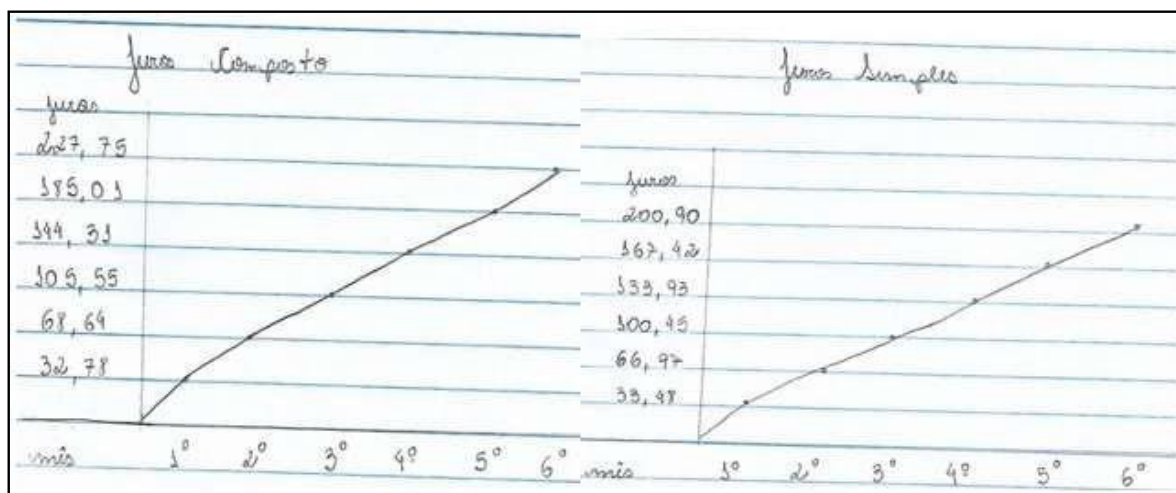 Juros Composto
juros
227,75
185,01
144,31
105,55
68,64
32,78
mês 1º 2º 3º 4º 5º 6º
Juros Simples
juros
200,90
167,42
133,93
100,45
66,97
33,48
mês 1º 2º 3º 4º 5º 6º